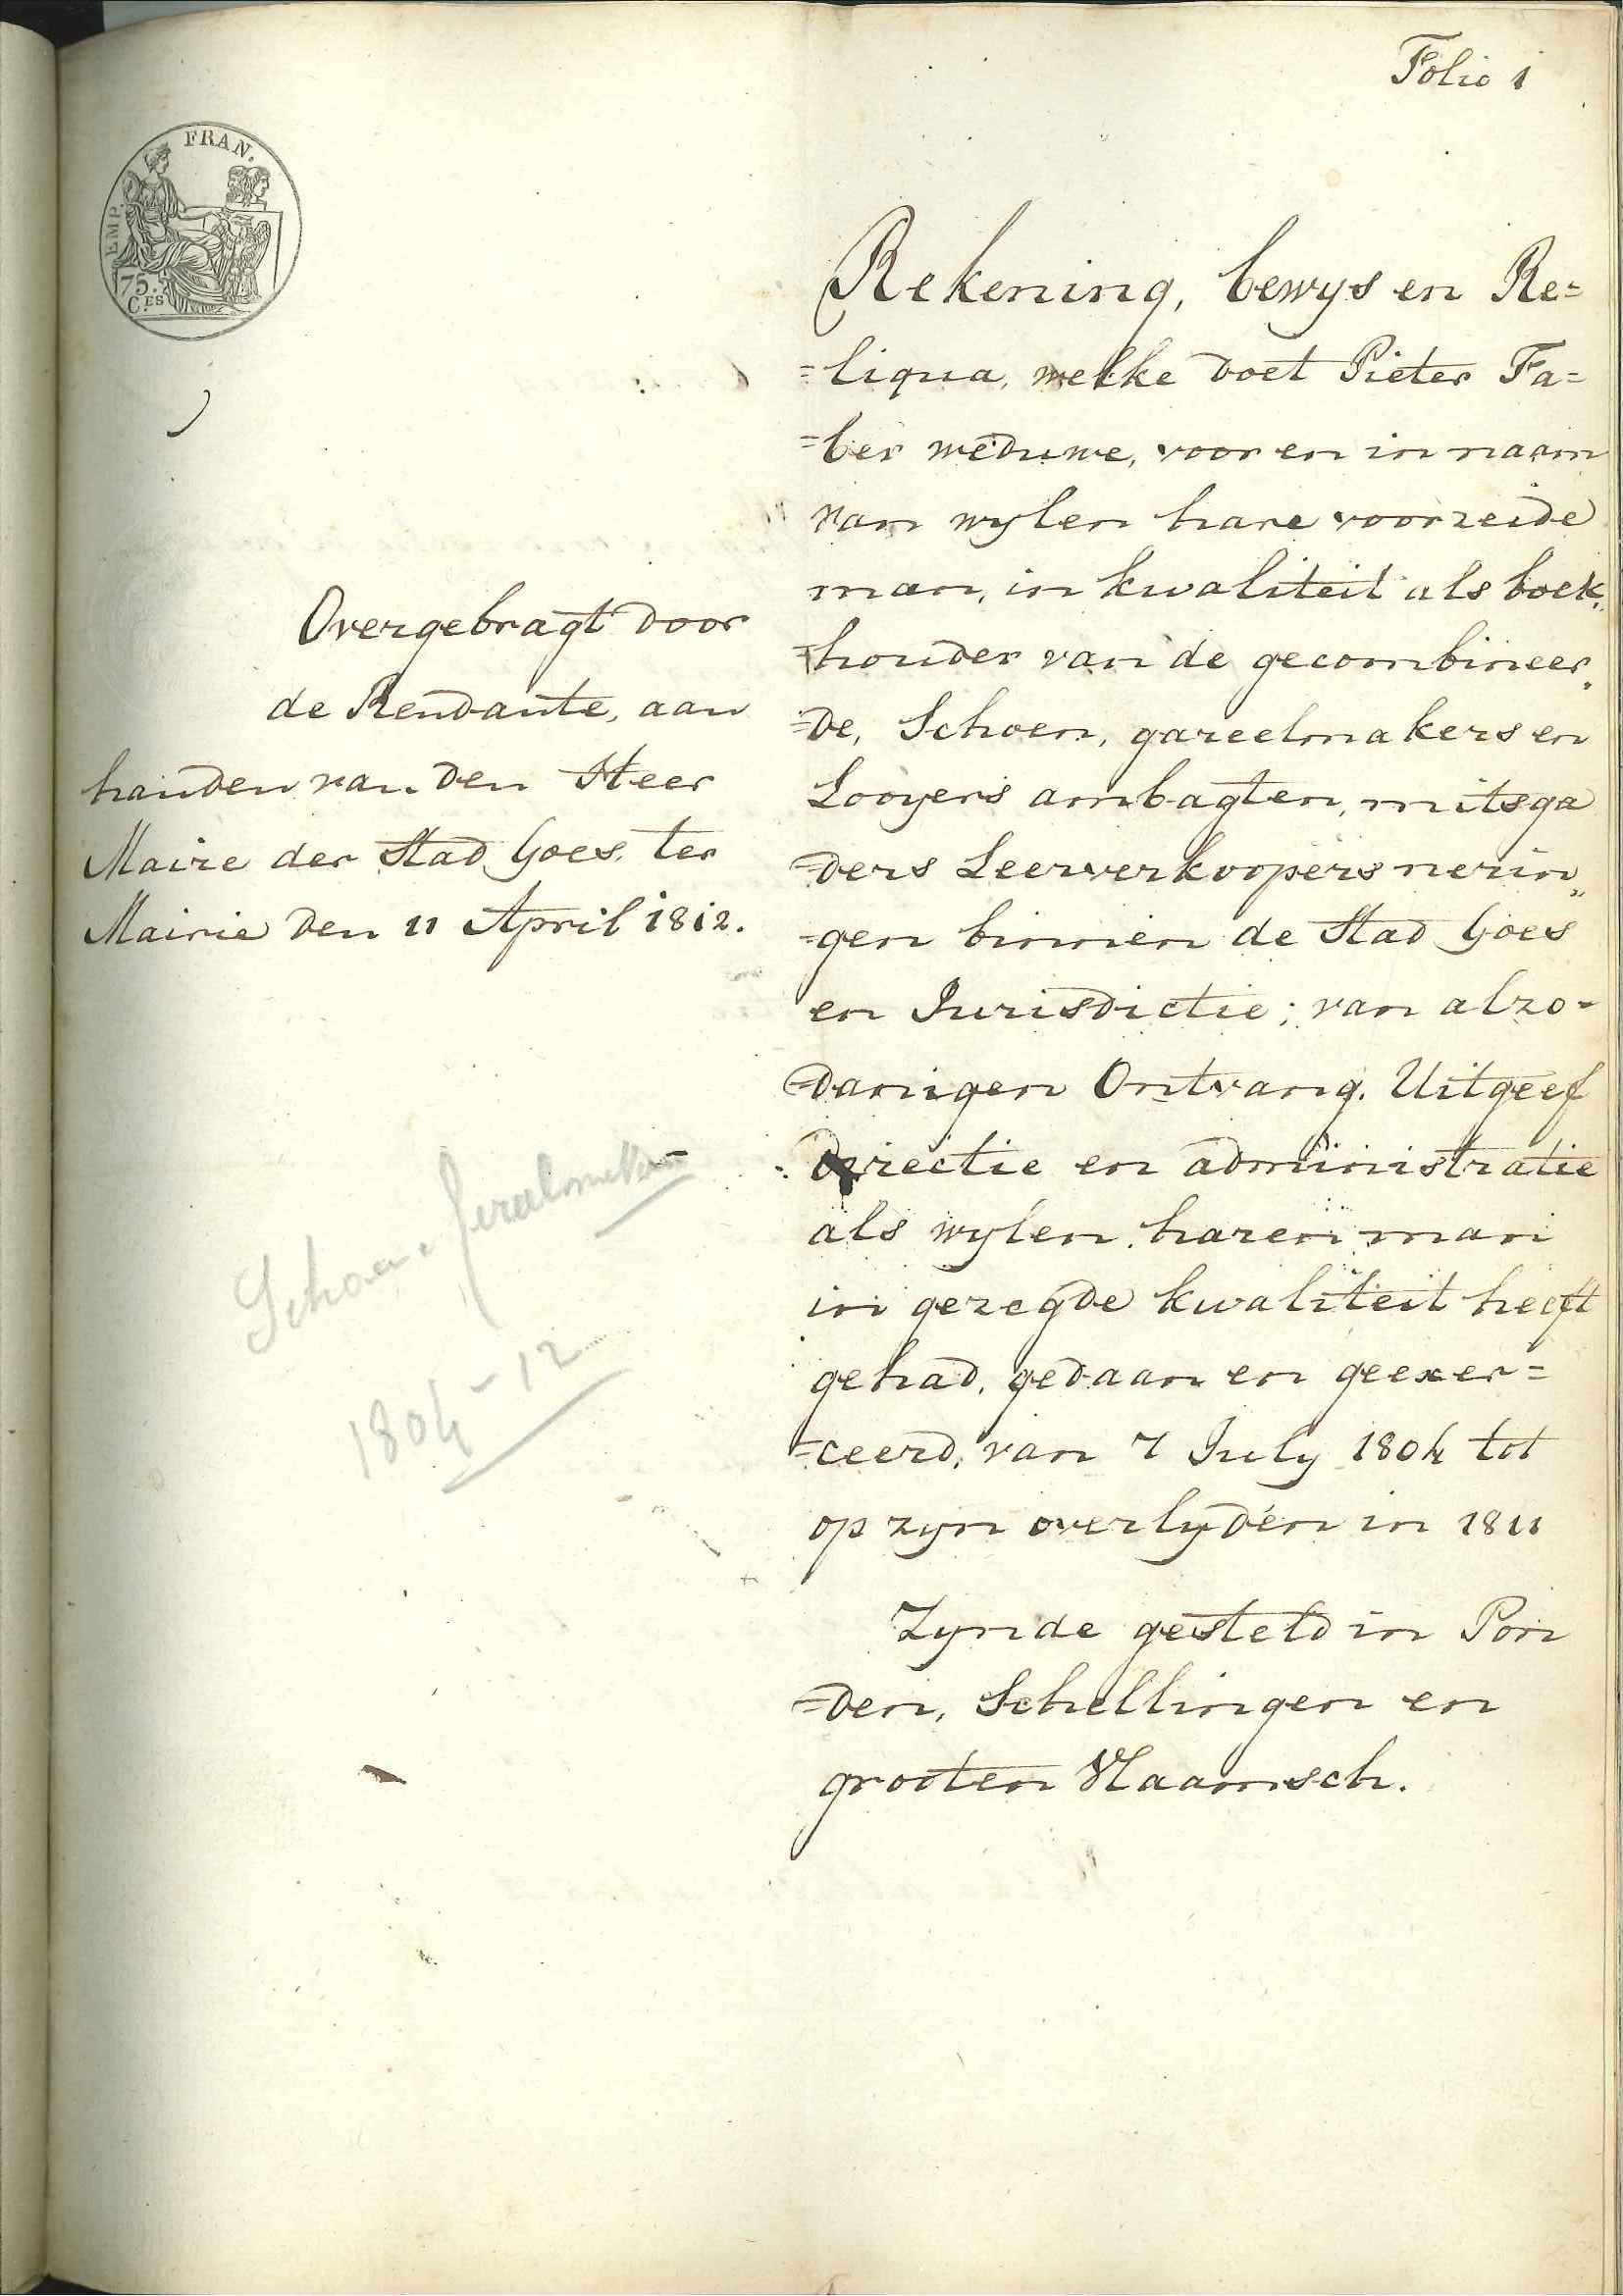 Folio 1
FRAN.
EMP.
75.
C.ES
Rekening, bewys en Re=
=liqua, welke doet Pieter Fa=
=ber weduwe, voor en in naam
van wylen hare voorzeide
man, in kwaliteit als boek„
=houder van de gecombineer„
=de, Schoen, gareelmakers en
Looyers ambagten, mitsga
=ders Leerverkoopers nerin„
=gen binnen de Stad Goes
en Jurisdictie; van alzo=
=danigen Ontvang. Uitgeef
directie en administratie
als wylen haren man
in gezegde kwaliteit heeft
gehad, gedaan en geexer=
=ceerd, van 7 July 1804 tot
op zyn overlyden in 1811
Zynde gesteld in Pon
=den, Schellingen en
grooten Vlaamsch.
Overgebragt door
de Rendante, aan
handen van den Heer
Maire der Stad Goes, ter
Mairie den 11 April 1812.
Schoen
1804-12